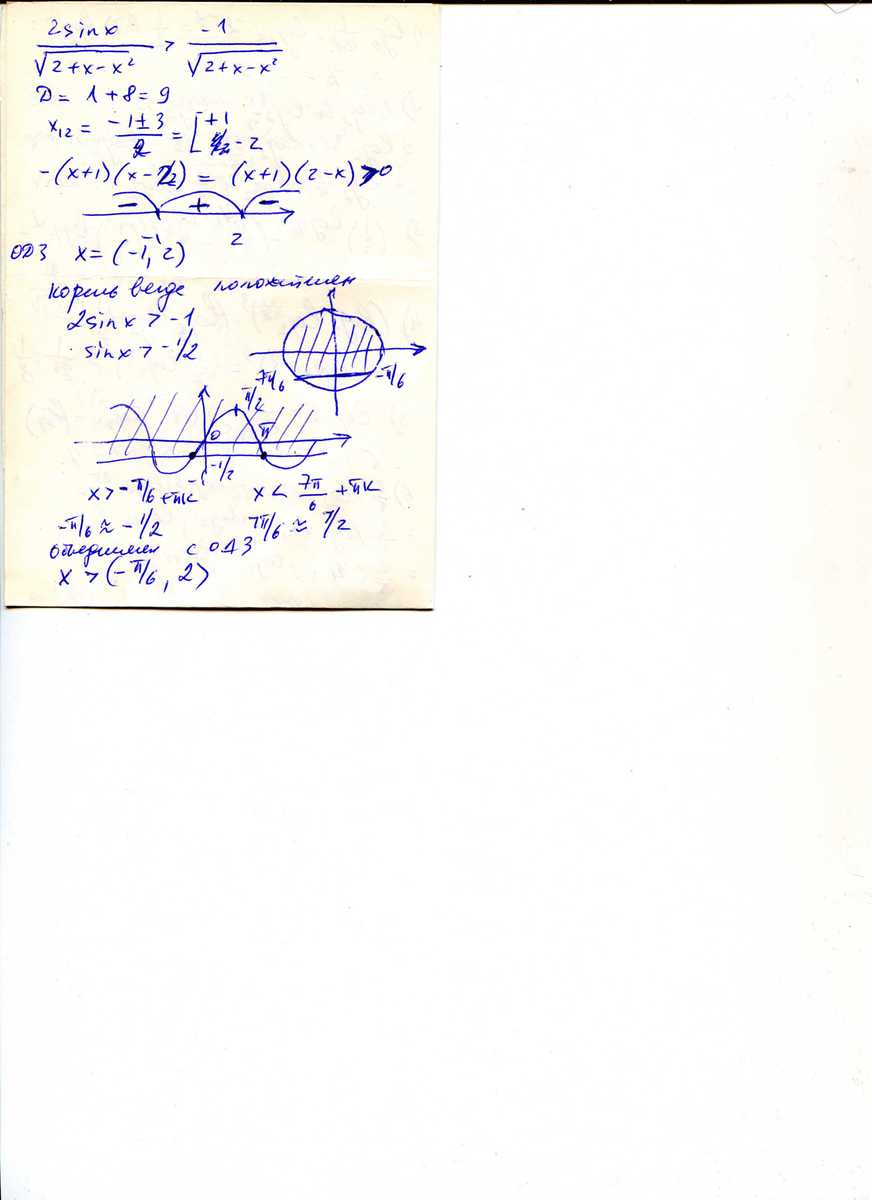 2sinx / √(2+x-x²) > -1 / √(2+x-x²)
D = 1+8=9
x₁₂ = (-1±3)/2 = [ +1
-2
-(x+1)(x-2) = (x+1)(2-x) > 0
- + -
-1 2
ОДЗ x = (-1, 2)
корень везде положителен
2sinx > -1
sinx > -1/2
7π/6 -π/6
π/2
0 π
-1/2
-1
x > -π/6 + πk x < 7π/6 + πk
-π/6 ≈ -1/2 7π/6 ≈ 7/2
объединяем с ОДЗ
x > (-π/6, 2)